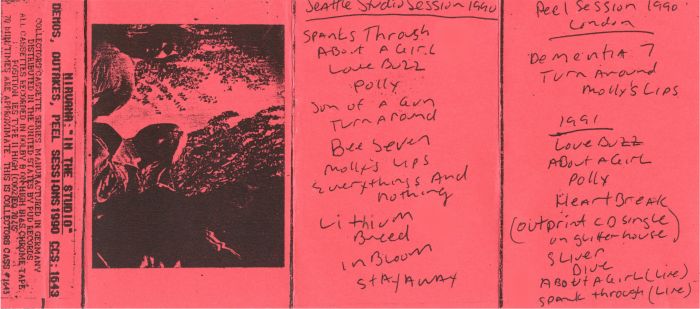 COLLECTORS CASSETTE SERIES MANUFACTURED IN GERMANY
DISTRIBUTED IN THE UNITED STATES BY PUD RECORDS
ALL CASSETTES RECORDED IN DOLBY B ON HIGH BIAS CHROME TAPE
POSITION IEC TYPE II HIGH (CrO2) EQ 70 US
70 MIN TIMES ARE APPROXIMATE THIS IS COLLECTORS CASS #1643
NIRVANA: "IN THE STUDIO"
DEMOS, OUTAKES, PEEL SESSIONS 1990 CCS:1643
Seattle Studio Session 1990
Spanks Through
About A Girl
Love Buzz
Polly
Son of A Gun
Turn Around
Bee Seven
Molly's Lips
Everythings And
nothing
Lithium
Breed
in Bloom
Stay Away
Peel Session 1990
London
Dementia 7
Turn Around
Molly's Lips
1991
Love Buzz
About A Girl
Polly
Heart Break
(outprint CD single
on glitterhouse)
Sliver
Dive
About A Girl (Live)
Spank through (Live)